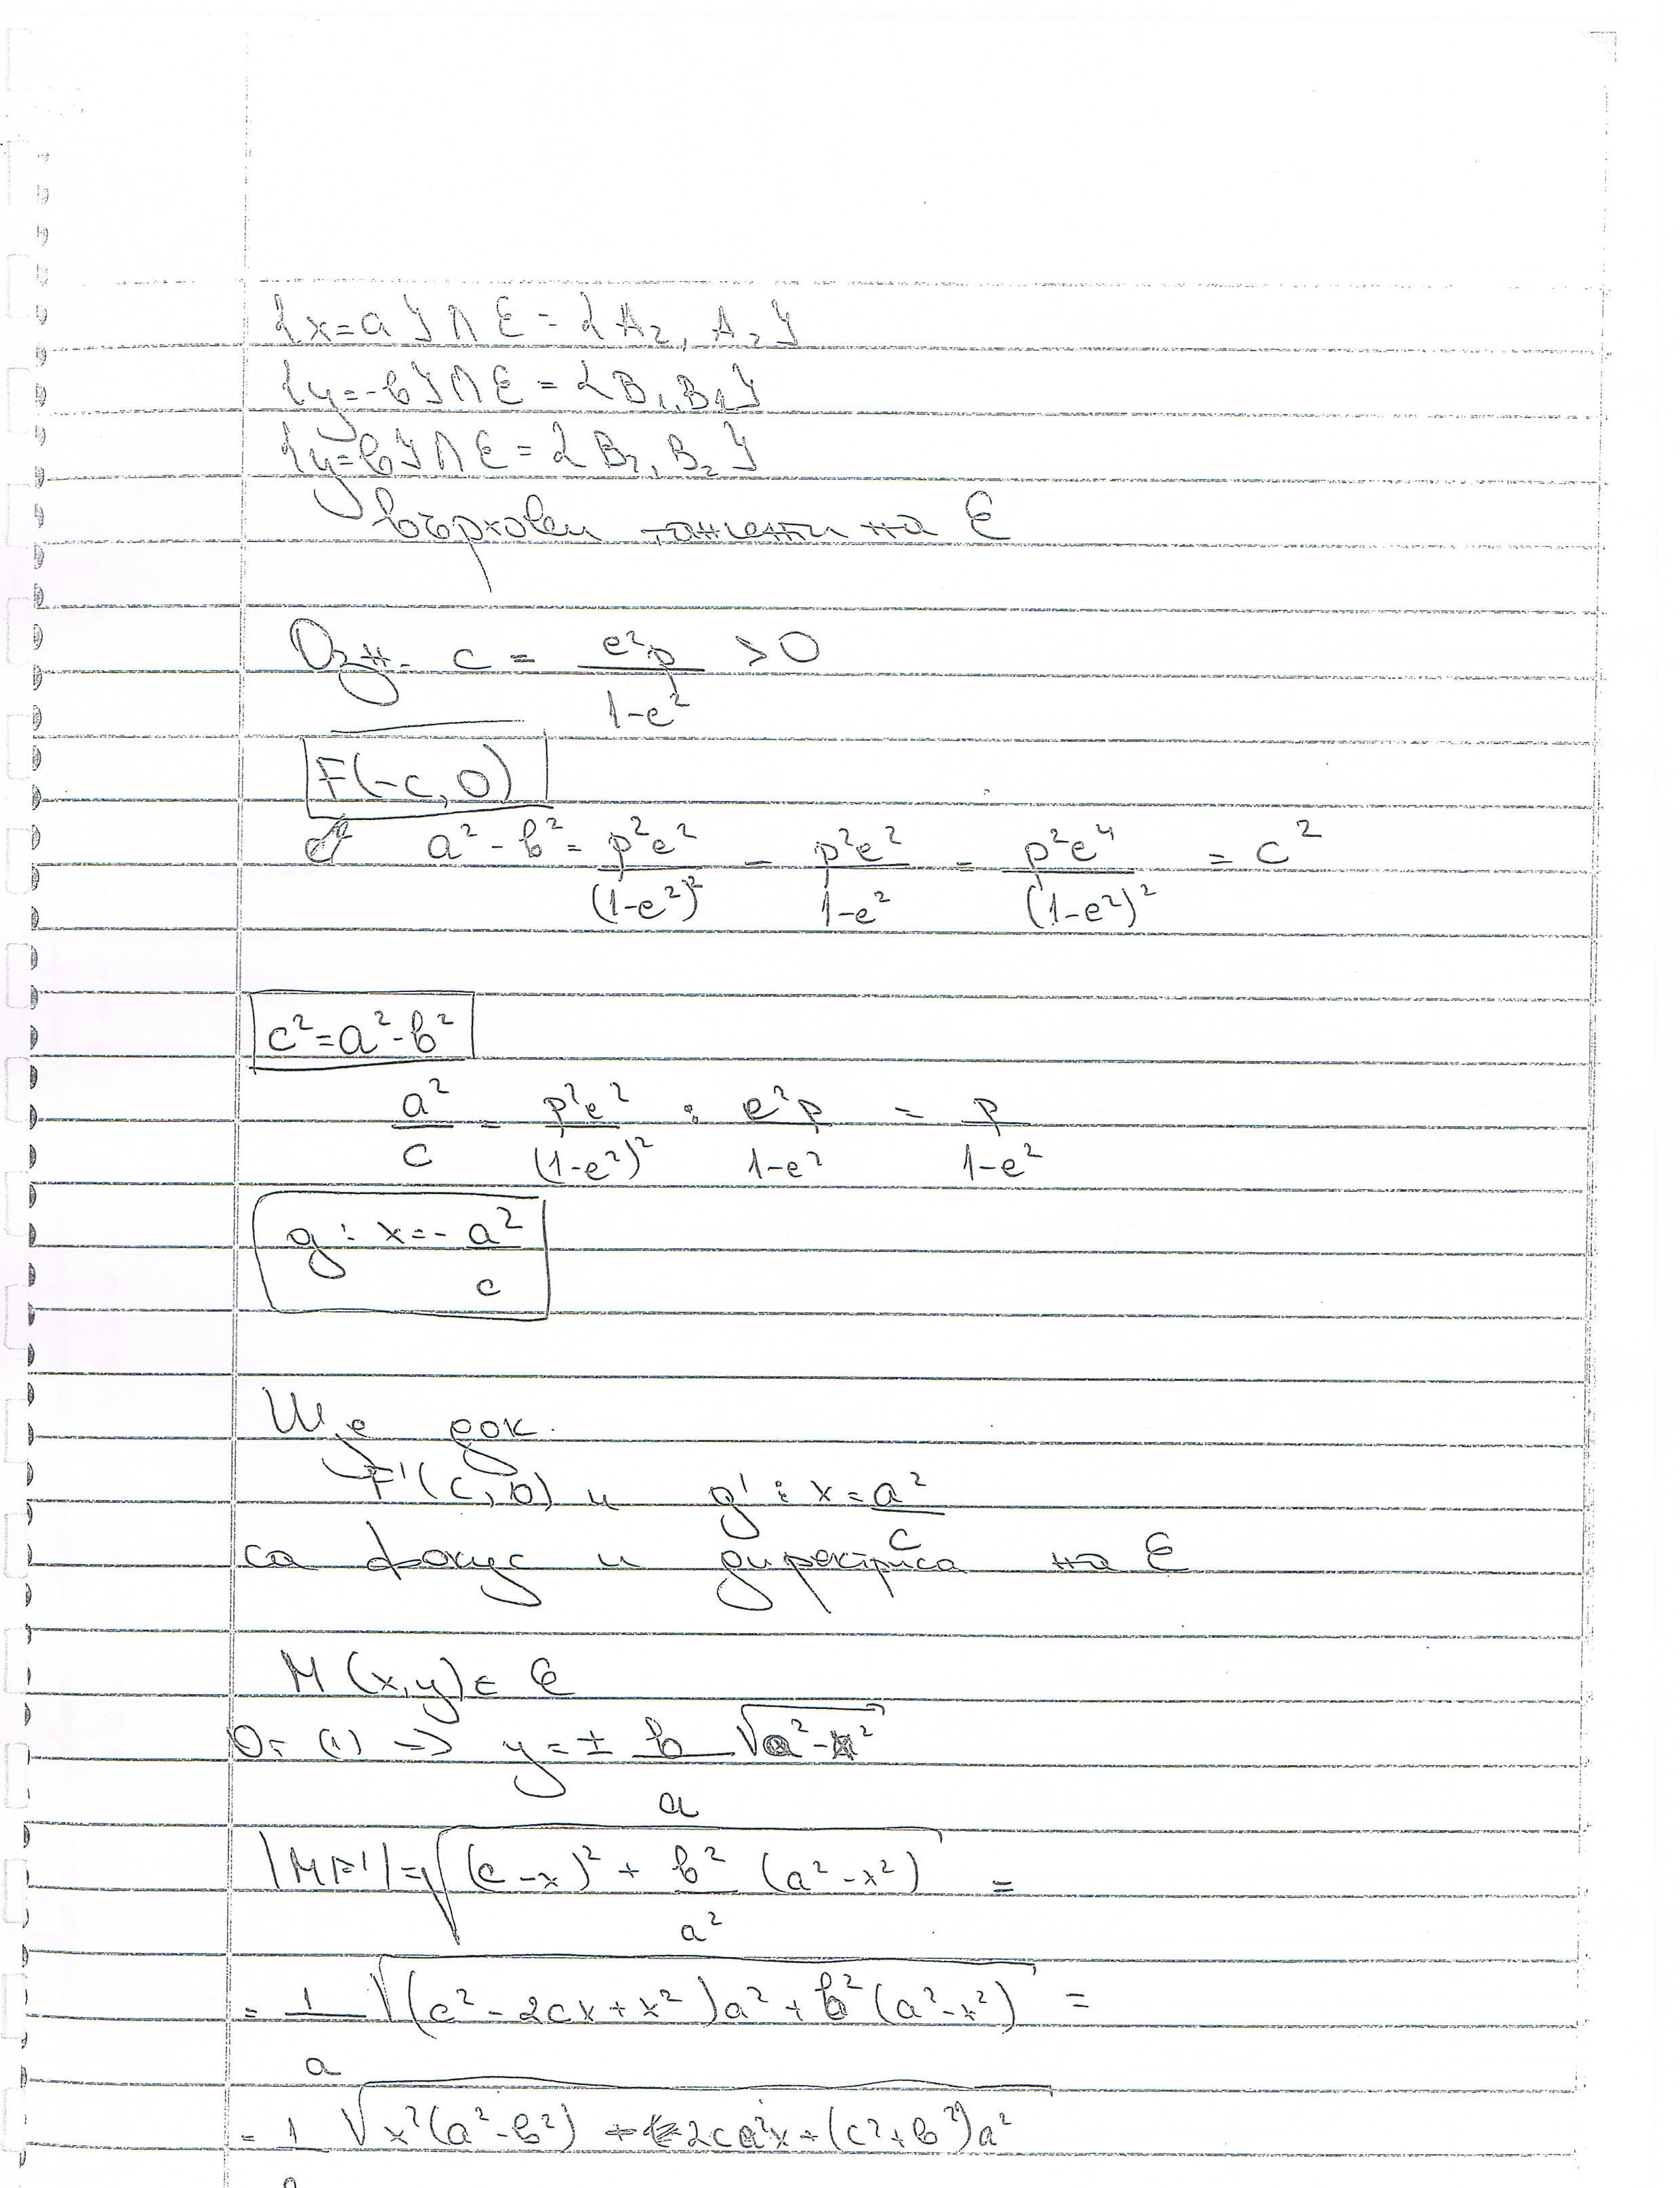 {x=a}∩E={A₂, A₂}
{y=-b}∩E={B₁, B₁}
{y=b}∩E={B₂, B₂}
върхови тангенти на E
Озн. c = e²p/(1-e²) > 0
F(-c, 0)
a²-b² = p²e²/(1-e²)² - p²e²/(1-e²) = p²e⁴/(1-e²)² = c²
c²=a²-b²
a²/c = p²e²/(1-e²)² : e²p/(1-e²) = p/(1-e²)
g: x=-a²/c
Ще док.
F'(c, 0) и g': x=a²/c
са фокус и директриса на E
M(x,y)∈E
От (1) => y=± b/a √(a²-x²)
|MF'|=√((c-x)²+b²/a² (a²-x²)) =
= 1/a √((c²-2cx+x²)a²+b²(a²-x²)) =
= 1/a √(x²(a²-b²) - 2ca²x+(c²+b²)a²)